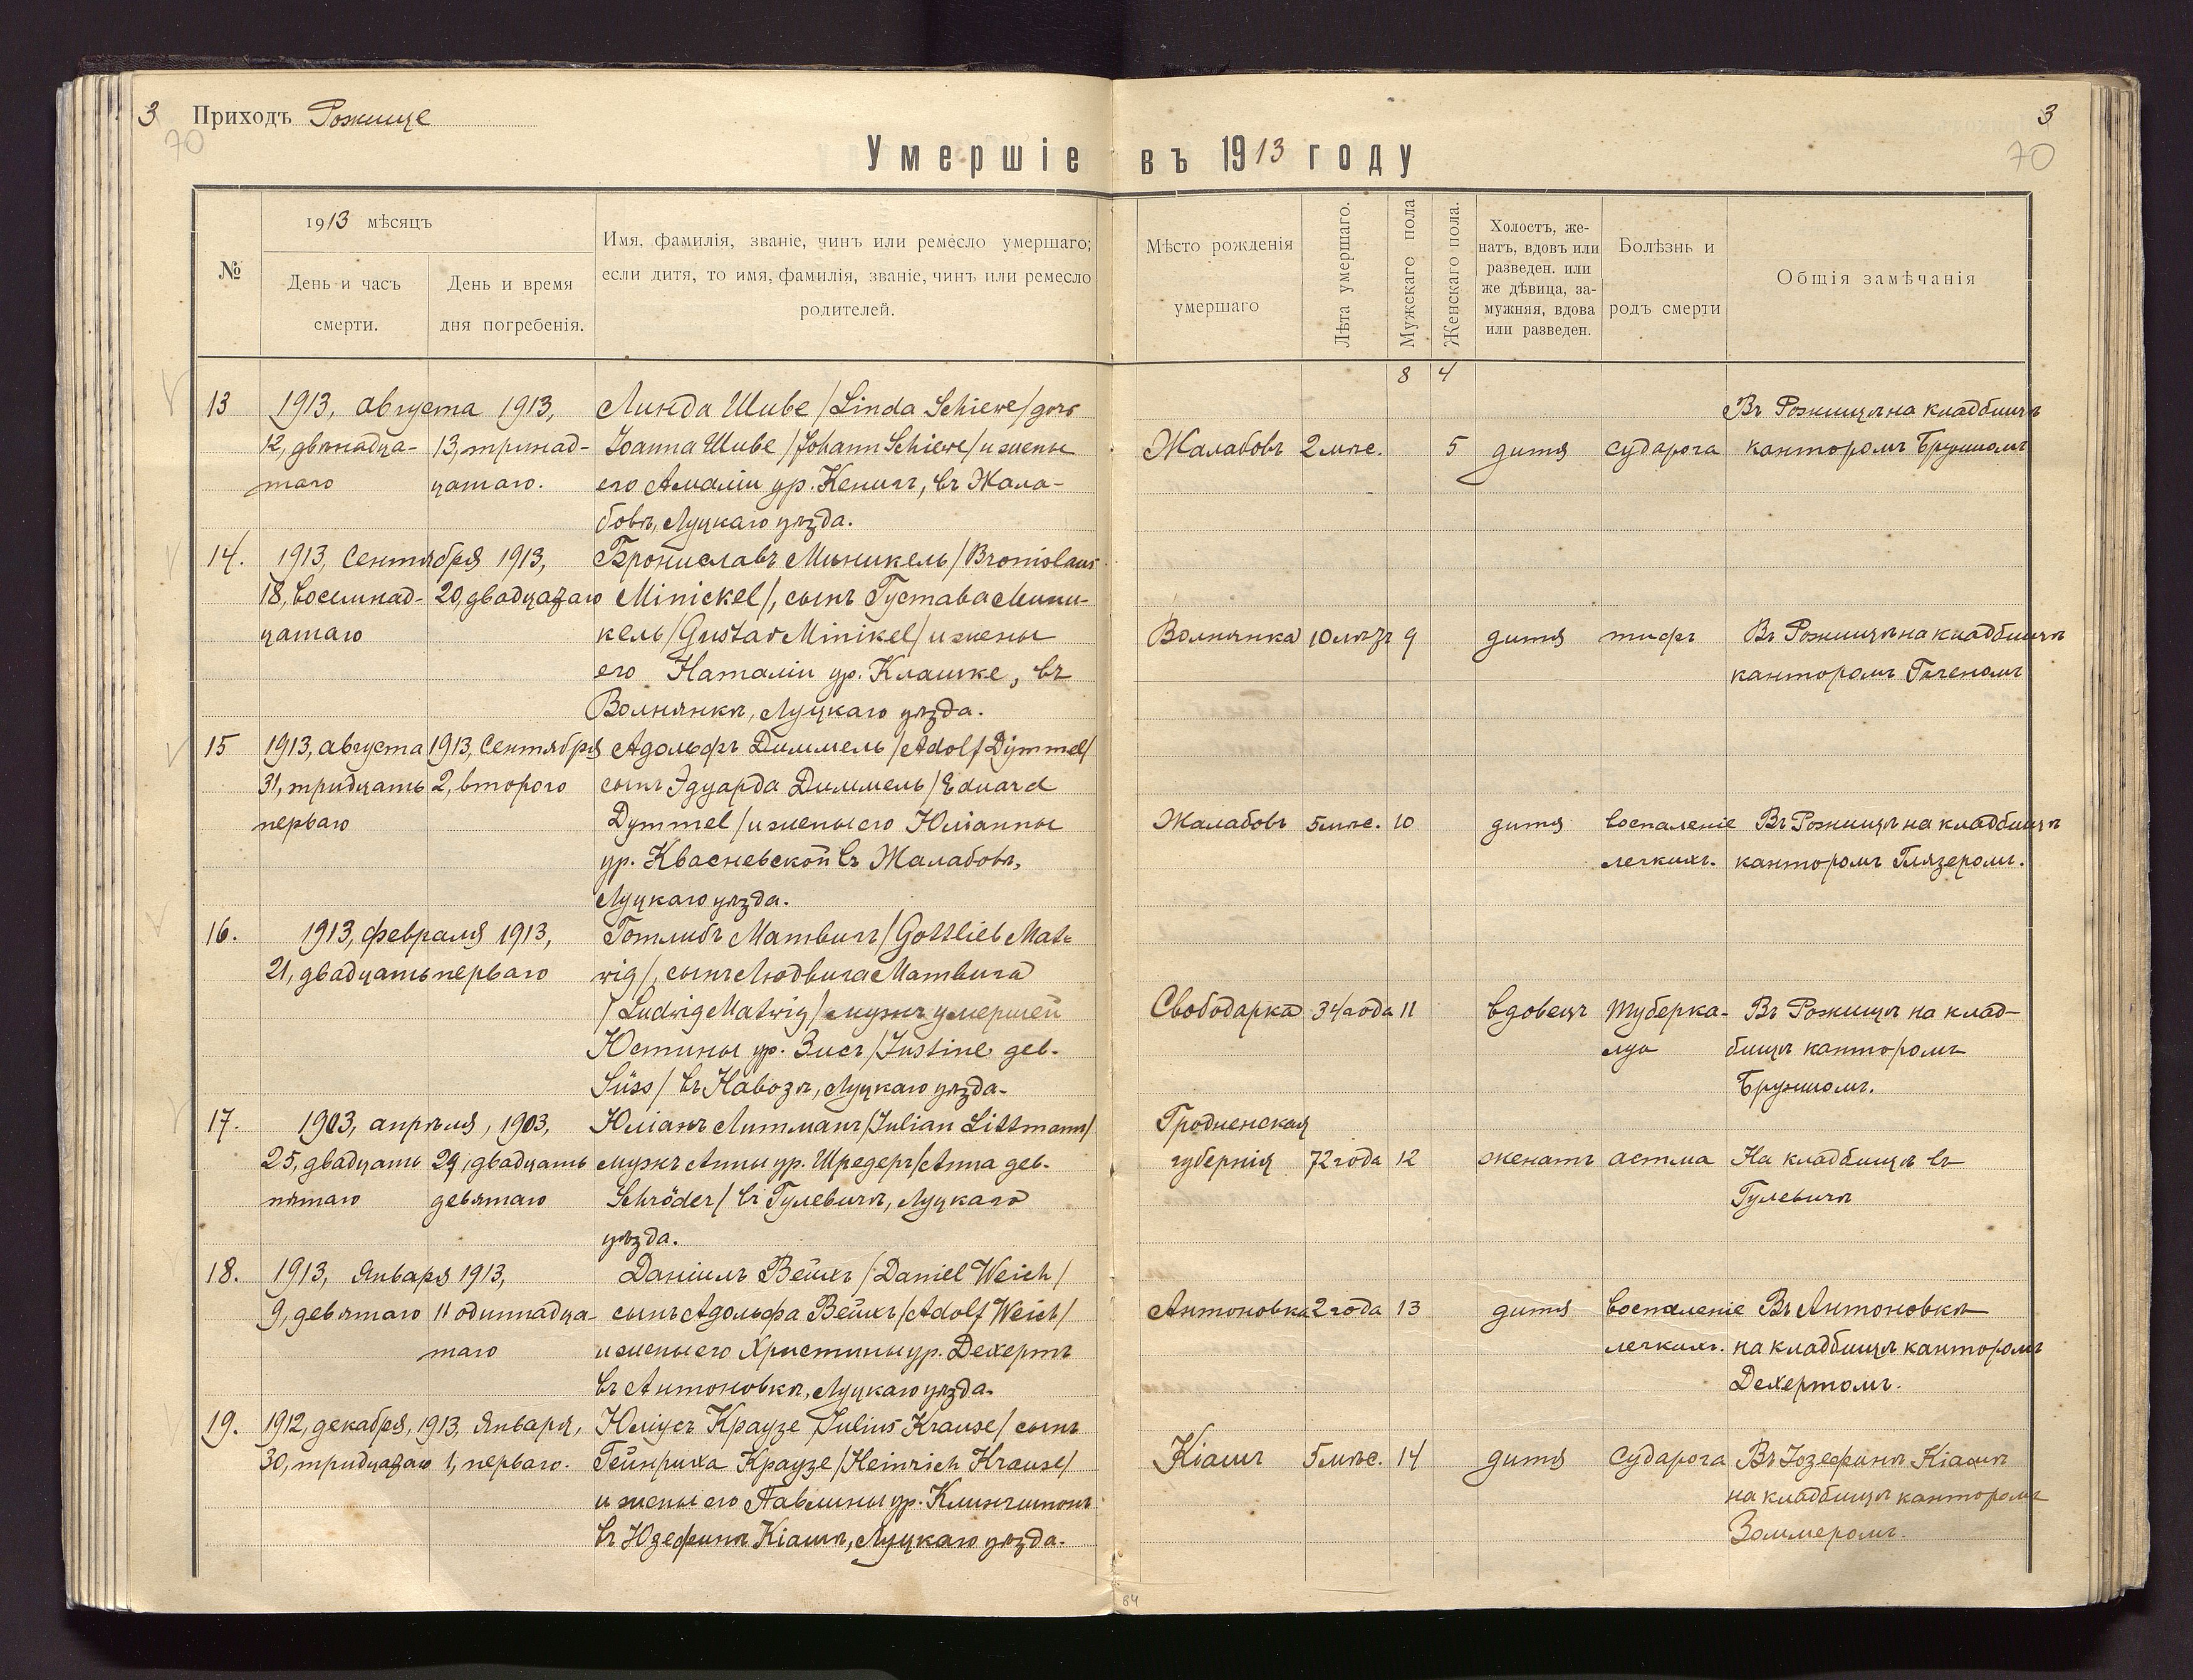 3 Приходъ Рожище
70
3
70
Умершіе въ 1913 году
№
1913 мѣсяцъ
День и часъ смерти.
День и время дня погребенія.
Имя, фамилія, званіе, чинъ или ремесло умершаго;
если дитя, то имя, фамилія, званіе, чинъ или ремесло
родителей.
Мѣсто рожденія
умершаго
Лѣта умершаго.
Мужскаго пола
Женскаго пола.
Холостъ, же-
натъ, вдовъ или
разведен. или
же дѣвица, за-
мужняя, вдова
или разведен.
Болѣзнь и
родъ смерти
Общія замѣчанія
8 4
13 1913, августа 1913,
12, двѣнадца- 13, тринад-
таго цатаго.
Линда Шиве /Linda Schiewe/ дочь
Іоанна Шиве /Johann Schiewe/ и жены
его Амаліи ур. Кенигъ, въ Жала-
бовѣ, Луцкаго уѣзда.
Жалабовъ 2 мѣс. 5 дитя судорога
Въ Рожищѣ на кладбищѣ
канторомъ Брушомъ
14. 1913, Сентября 1913,
18, восемнад- 20, двадцатаго
цатаго
Брониславъ Миникель /Bronislaus
Minickel/, сынъ Густава Мини-
кель /Gustav Minikel/ и жены
его Наталіи ур. Клашке, въ
Волнянкѣ, Луцкаго уѣзда.
Волнянка 10 лѣтъ 9 дитя тифъ
Въ Рожищѣ на кладбищѣ
канторомъ
15 1913, августа 1913, Сентября
31, тридцать 2, второго
перваго
Адольфъ Диммель /Adolf Dymmel/
сынъ Эдуарда Диммель /Eduard
Dymmel/ и жены его Юліанны
ур. Квасневской въ Жалабовѣ,
Луцкаго уѣзда.
Жалабовъ 5 мѣс. 10 дитя воспаленіе
легкихъ.
Въ Рожищѣ на кладбищѣ
канторомъ Глязеромъ.
16. 1913, февраля 1913,
21, двадцать перваго
Готлибъ Матвигъ /Gottlieb Mat-
wig/, сынъ Людвига Матвига
/Ludwig Matwig/ мужъ умершей
Юстины ур. Зисъ /Justine geb.
Süss/ въ Навозѣ, Луцкаго уѣзда.
Свободарка 34 года 11 вдовецъ туберка-
луз
Въ Рожищѣ на клад-
бищѣ канторомъ
Брушомъ.
17. 1903, апрѣля, 1903,
25, двадцать 29, двадцать
пятаго девятаго
Юліанъ Литманъ /Julian Littmann/
мужъ Анны ур. Шредеръ /Anna geb.
Schröder/ въ Гулевичѣ, Луцкаго
уѣзда.
Гродненская
губернія 72 года 12 женатъ астма
На кладбищѣ въ
Гулевичѣ
18. 1913, Января 1913,
9, девятаго 11 одиннадца-
таго
Даніилъ Вейхъ /Daniel Weich/
сынъ Адольфа Вейхъ /Adolf Weich/
и жены его Христины ур. Дехертъ
въ Антоновкѣ, Луцкаго уѣзда.
Антоновка 2 года 13 дитя воспаленіе
легкихъ.
Въ Антоновкѣ
на кладбищѣ канторомъ
Дехертомъ.
19. 1912, декабря, 1913, Января,
30, тридцатаго 1, перваго.
Юліусъ Краузе /Julius Krause/ сынъ
Гейнриха Краузе /Heinrich Krause/
и жены его Павлины ур.
въ Юзефинѣ Кіашѣ, Луцкаго уѣзда.
Кіашъ 5 мѣс. 14 дитя Судорога
Въ Іозефинѣ Кіашѣ
на кладбищѣ канторомъ
Зоммеромъ.
84